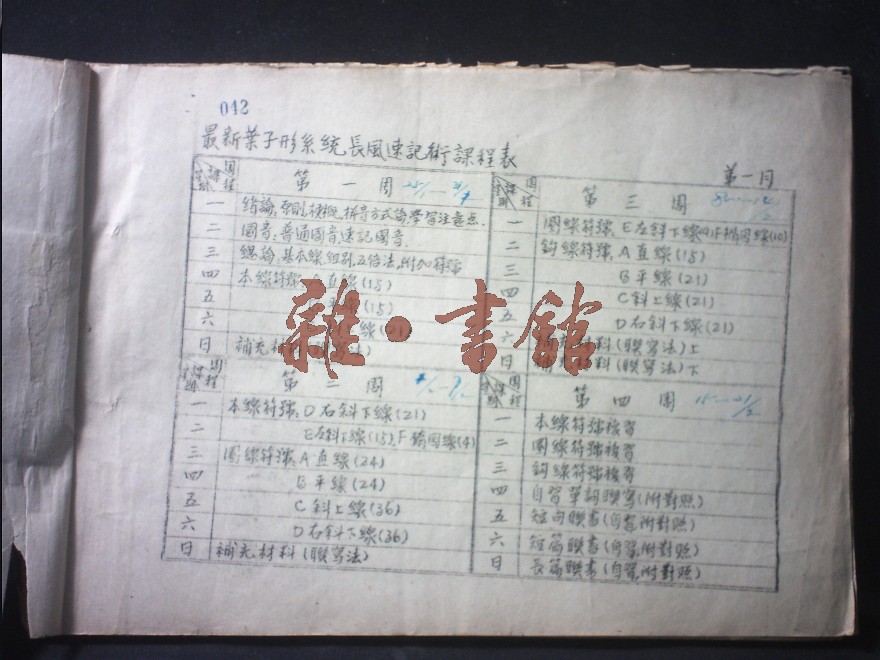 042
最新葉子形系統長風速記術課程表
第一月
第一周
一 緒論:原則,梗概,拼音方式,學習注意点.
二 國音:普通國音,速記國音.
三 總論:基本線組別,五倍法,附加符號
四 本線符號:A直線(15)
五 平線(15)
六 線(21)
日 補充材
第二周
一 本線符號:D右斜下線(21)
二 E左斜下線(15),F橢圓線(4)
三 圈線符號:A直線(24)
四 B平線(24)
五 C斜上線(36)
六 D右斜下線(36)
日 補充材料(聯寫法)
第三周
一 圈線符號,E左斜下線 F橢圓線(10)
二 鈎線符號,A直線(15)
三 B平線(21)
四 C斜上線(21)
五 D右斜下線(21)
六 料(聯寫法)上
日 料(聯寫法)下
第四周
一 本線符號複習
二 圈線符號複習
三 鈎線符號複習
四 自習單詞聯寫(附對照)
五 短句聯書(自習,附對照)
六 短篇聯書(自習,附對照)
日 長篇聯書(自習,附對照)
雜·書館